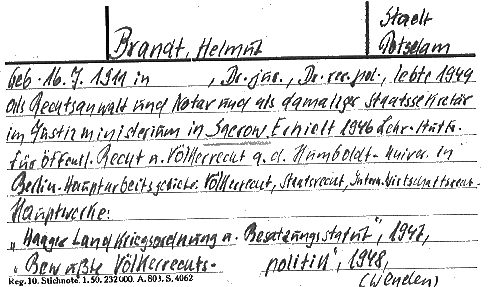 Stadt
Brandt, Helmut Potsdam
Geb. 16.7.1911 in , Dr. jur., Dr. rer. pol., lebte 1949
als Rechtsanwalt und Notar und als damaliger Staatssekretär
im Justizministerium in Sacrow. Erhielt 1946 Lehr-
für öffentl. Recht u. Völkerrecht a. d. Humboldt-Univers. in
Berlin. Hauptarbeitsgebiete: Völkerrecht, Staatsrecht, Intern. Wirtschaftsrecht.
Hauptwerke:
„Haager Landkriegsordnung u. Besatzungsstatut", 1947,
„Bewußte Völkerrechts- politik", 1948,
Reg. 10. Stichnote. 1. 50. 232 000. A. 803. S. 4062
(wenden)